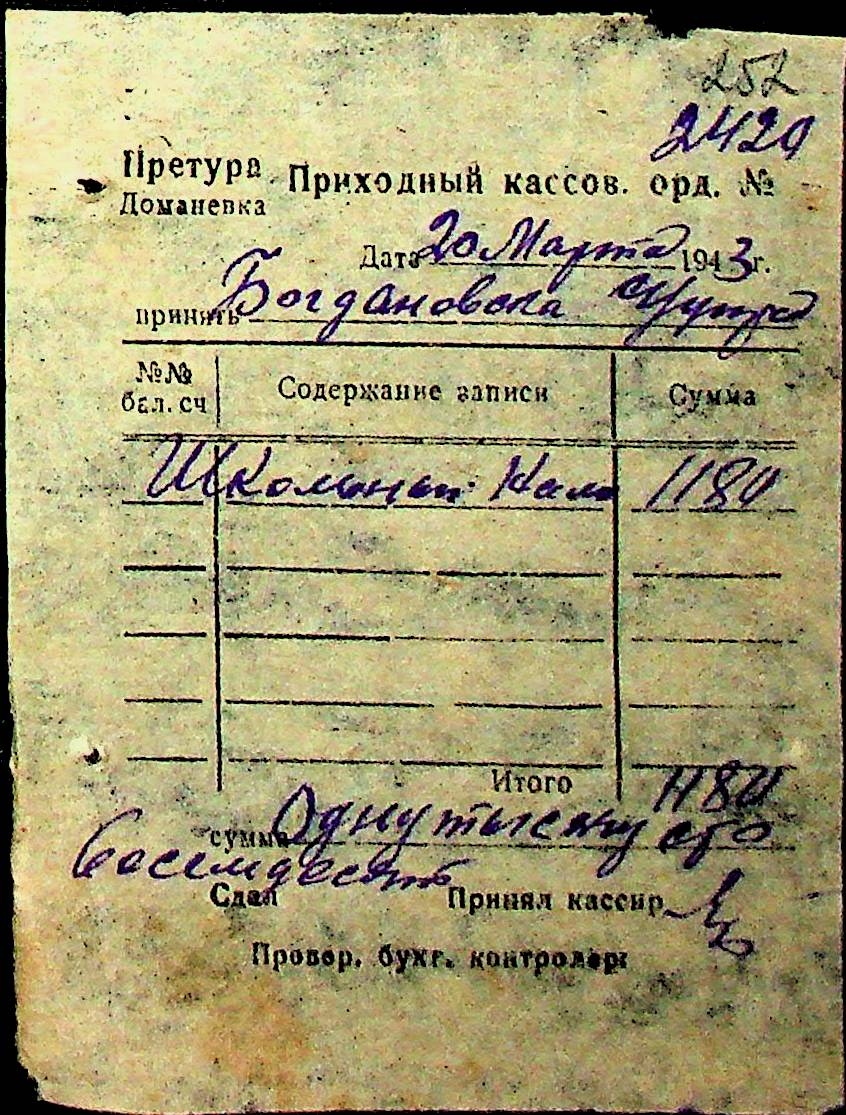 252
2420
Претура Приходный кассов. орд. №
Доманевка
Дата 20 Марта 1943 г.
принять Богдановска
№№ бал. сч Содержание записи Сумма
1180
Итого 1180
сумма Одну тысячу сто
восемдесят
Сдал Принял кассир
Провер. бухг. контролер: